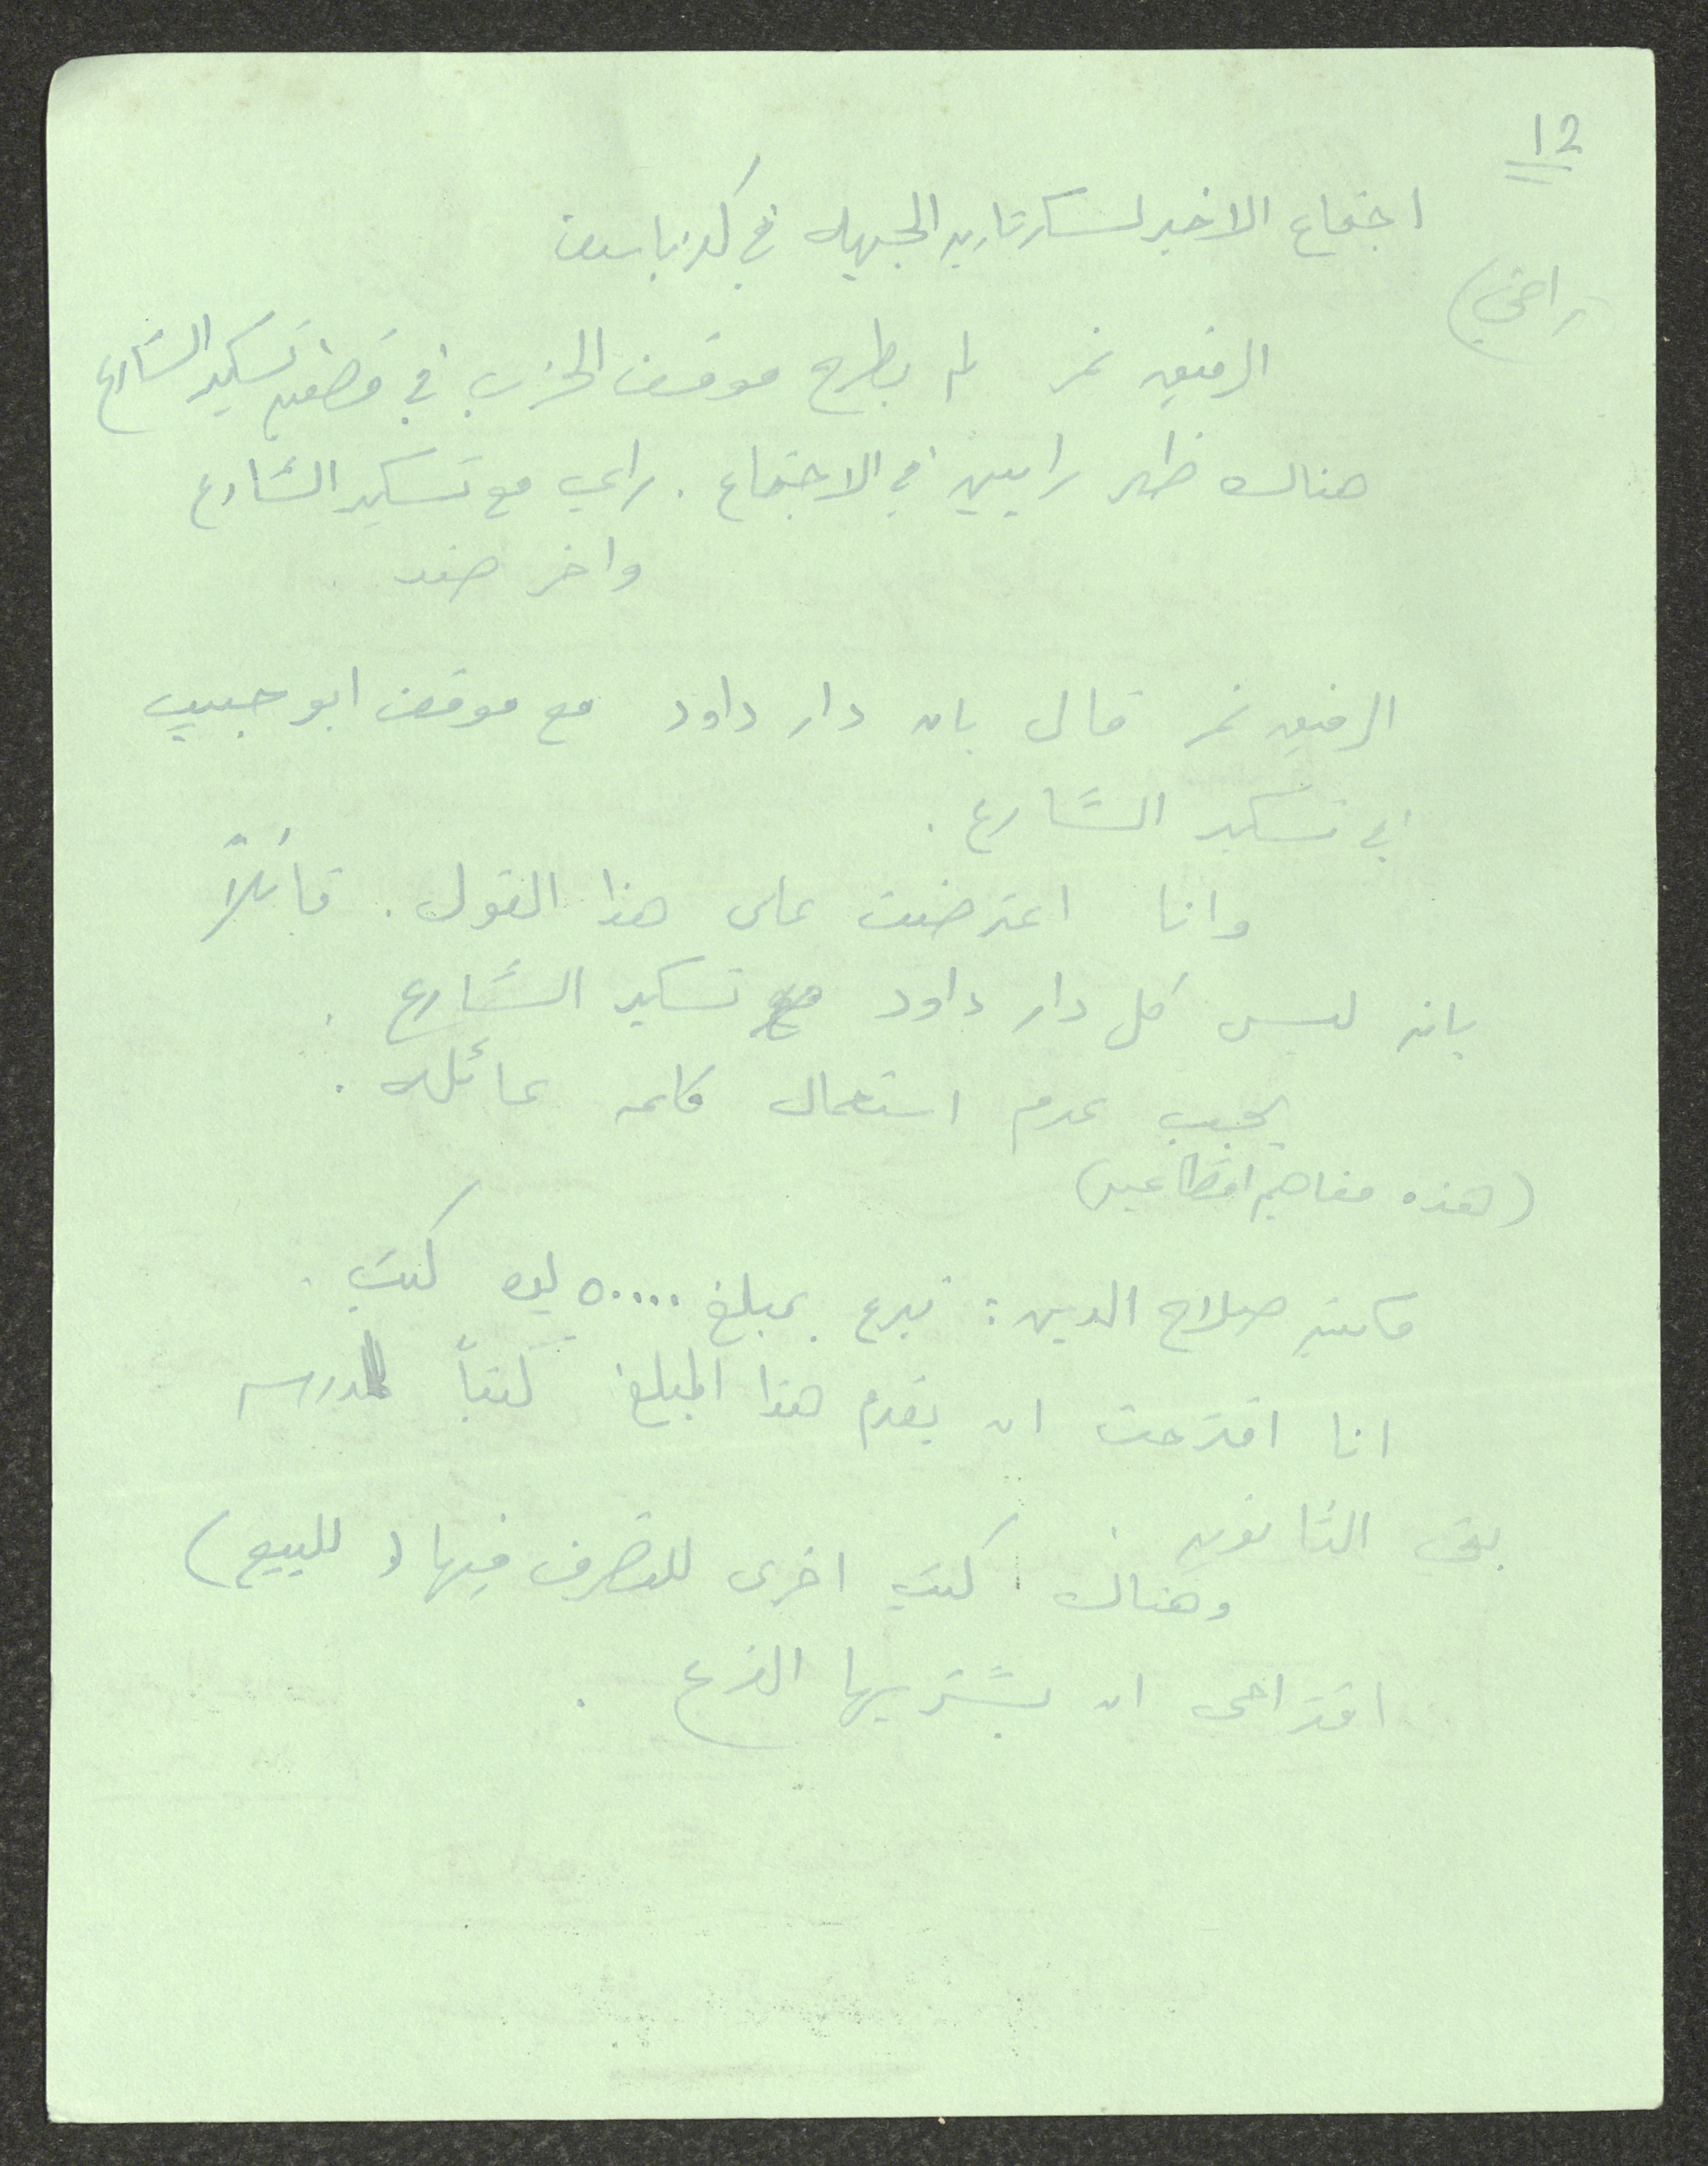 12
اجتماع الاخير لسكرتاريه الجبهه في كفرياسيف
راضي)
الرفيق نمر لم يطرح موقف الحزب في قضيه تسكير الشارع
هناك ظهر رايين في الاجتماع . راي مع تسكير الشارع
واخر ضد
الرفيق نمر قال بان دار داود مع موقف ابو حبيب
في تسكير الشارع .
وانا اعترضت على هذا القول . قائلاً
بانه ليس كل دار داود مع تسكير الشارع .
يجب عدم استعمال كلمه عائله .
(هذه مفاهيم اقطاعيه)
صلاح الدين : تبرع بمبلغ ٥٠٠٠٠ ليره كتب .
انا اقترحت ان يقدم هذا المبلغ كتباً للمدرسه
يني الثانويه .
وهناك كتب اخرى للتصرف فيها ( للبيع )
اقتراحي ان يشتريها الفرع .